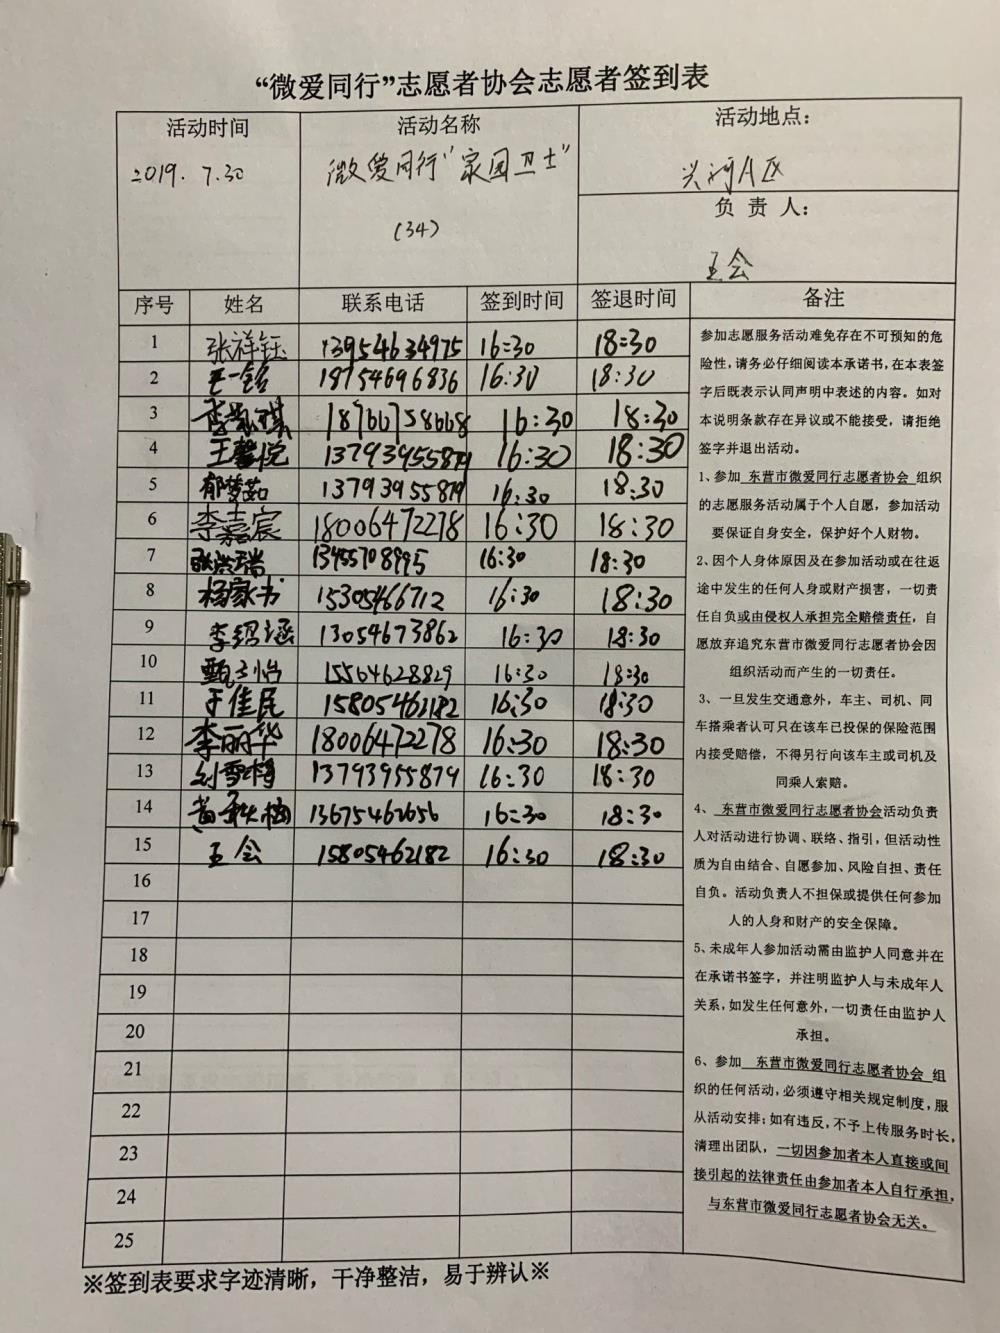 “微爱同行”志愿者协会志愿者签到表
活动时间 活动名称 活动地点：
2019. 7.30 微爱同行“家园卫士” 兴河A区
(34)
负 责 人：
王会
序号 姓名 联系电话 签到时间 签退时间 备注
1 张祥钰 13954634975 16:30 18:30
2 王一铭 18754696836 16:30 18:30
3 18766758668 16:30 18:30
4 王馨悦 13793955879 16:30 18:30
5 郁梦茹 13793955879 16:30 18:30
6 李嘉宸 18006472278 16:30 18:30
7 张洪瑞 13455708995 16:30 18:30
8 杨家书 15305466712 16:30 18:30
9 李绍涵 13054673862 16:30 18:30
10 甄子怡 15564628829 16:30 18:30
11 于佳民 15805462182 16:30 18:30
12 李丽华 18006472278 16:30 18:30
13 刘雪梅 13793955879 16:30 18:30
14 黄秋梅 13675462656 16:30 18:30
15 王会 15805462182 16:30 18:30
16
17
18
19
20
21
22
23
24
25
参加志愿服务活动难免存在不可预知的危
险性，请务必仔细阅读本承诺书，在本表签
字后既表示认同声明中表述的内容。如对
本说明条款存在异议或不能接受，请拒绝
签字并退出活动。
1、参加 东营市微爱同行志愿者协会 组织
的志愿服务活动属于个人自愿，参加活动
要保证自身安全，保护好个人财物。
2、因个人身体原因及在参加活动或在往返
途中发生的任何人身或财产损害，一切责
任自负或由侵权人承担完全赔偿责任，自
愿放弃追究东营市微爱同行志愿者协会因
组织活动而产生的一切责任。
3、一旦发生交通意外，车主、司机、同
车搭乘者认可只在该车已投保的保险范围
内接受赔偿，不得另行向该车主或司机及
同乘人索赔。
4、东营市微爱同行志愿者协会活动负责
人对活动进行协调、联络、指引，但活动性
质为自由结合、自愿参加、风险自担、责任
自负。活动负责人不担保或提供任何参加
人的人身和财产的安全保障。
5、未成年人参加活动需由监护人同意并在
在承诺书签字，并注明监护人与未成年人
关系，如发生任何意外，一切责任由监护人
承担。
6、参加 东营市微爱同行志愿者协会 组
织的任何活动，必须遵守相关规定制度，服
从活动安排；如有违反，不予上传服务时长，
清理出团队，一切因参加者本人直接或间
接引起的法律责任由参加者本人自行承担，
与东营市微爱同行志愿者协会无关。
※签到表要求字迹清晰，干净整洁，易于辨认※